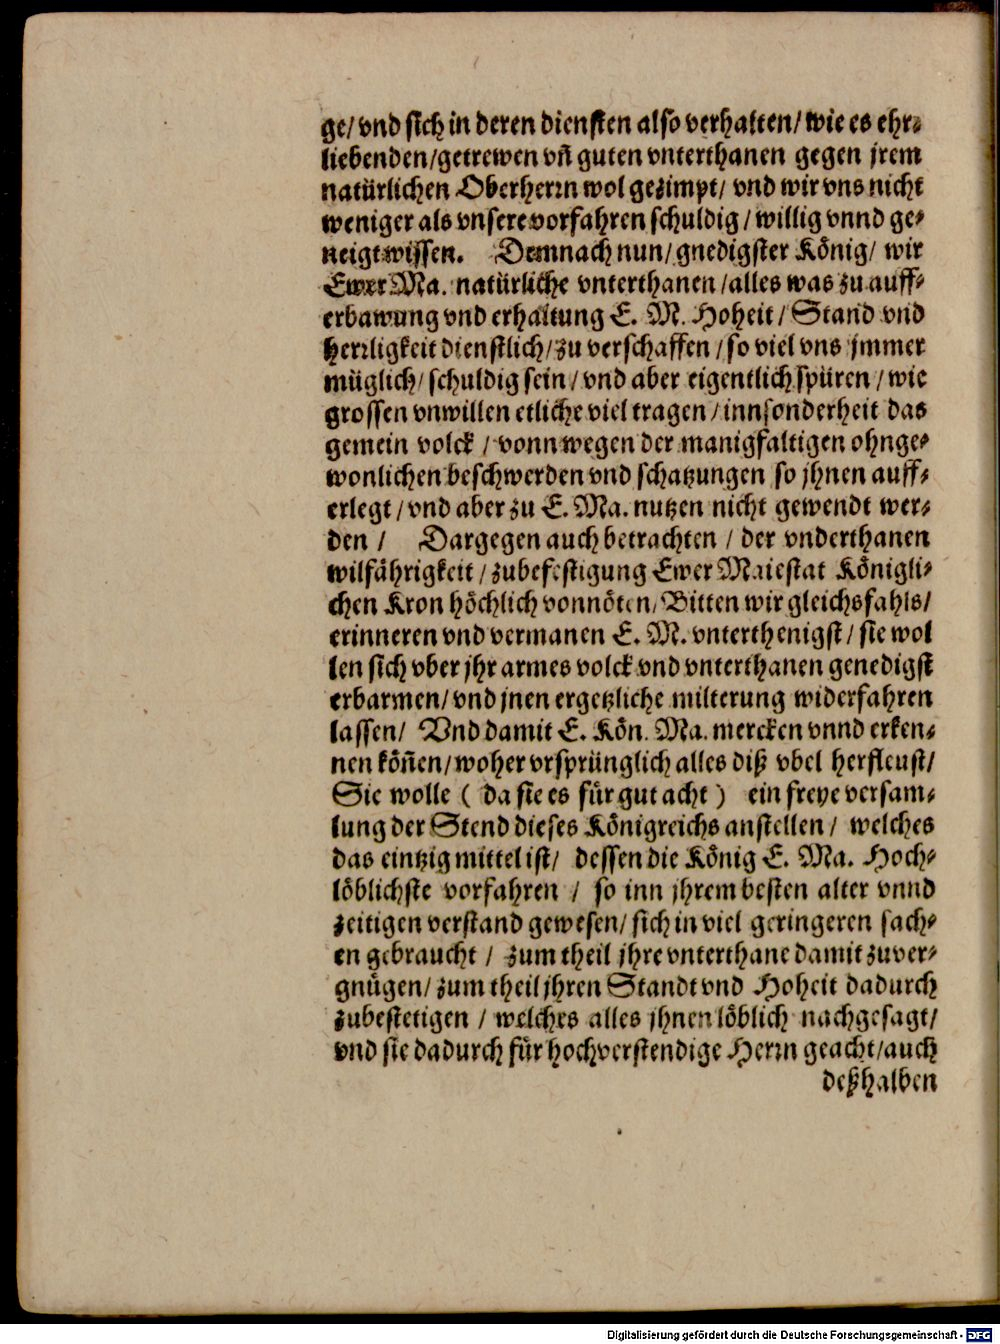 ge/ vnd sich in deren diensten also verhalten/ wie es ehr⸗
liebenden/getrewen vñ guten vnterthanen gegen jrem
natürlichen Oberherrn wol gezimpt/ vnd wir vns nicht
weniger als vnsere vorfahren schuldig / willig vnnd ge⸗
neigt wissen. Demnach nun/ gnedigster König/ wir
Ewer Ma. natürliche vnterthanen /alles was zu auff⸗
erbawung vnd erhaltung E. M. Hoheit / Stand vnd
herrligkeit dienstlich/ zu verschaffen / so viel vns jmmer
müglich/ schuldig sein / vnd aber eigentlich spüren / wie
grossen vnwillen etliche viel tragen / innsonderheit das
gemein volck / vonn wegen der manigfaltigen ohnge⸗
wonlichen beschwerden vnd schatzungen so jhnen auff⸗
erlegt / vnd aber zu E. Ma. nutzen nicht gewendt wer⸗
den / Dargegen auch betrachten / der vnderthanen
wilfährigkeit / zubefestigung Ewer Maiestat Königli⸗
chen Kron höchlich vonnöten/ Bitten wir gleichsfahls/
erinneren vnd vermanen E. M. vnterthenigst / sie wol
len sich vber jhr armes volck vnd vnterthanen genedigst
erbarmen/ vnd jnen ergetzliche milterung widerfahren
lassen/ Vnd damit E. Kön. Ma. mercken vnnd erken⸗
nen köñen/ woher vrsprünglich alles diß vbel herfleust/
Sie wolle ( da sie es für gut acht ) ein freye versam⸗
lung der Stend dieses Königreichs anstellen / welches
das eintzig mittel ist/ dessen die König E. Ma. Hoch⸗
löblichste vorfahren / so inn jhrem besten alter vnnd
zeitigen verstand gewesen/ sich in viel geringeren sach⸗
en gebraucht / zum theil jhre vnterthane damit zuver⸗
gnügen/ zum theil jhren Standt vnd Hoheit dadurch
zubestetigen / welches alles jhnen löblich nachgesagt/
vnd sie dadurch für hochverstendige Herrn geacht/auch
deßhalben
Digitalisierung gefördert durch die Deutsche Forschungsgemeinschaft - DFG